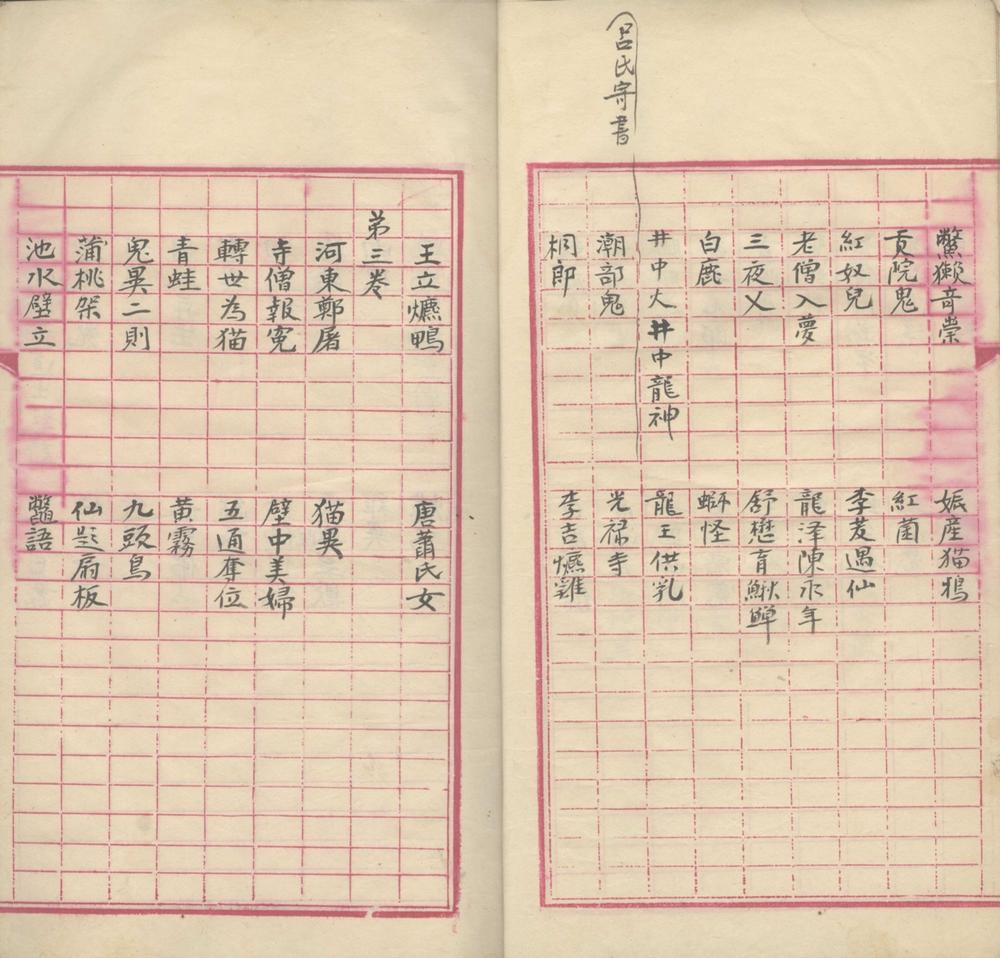 鱉獺奇祟 娠產猫鴉
貢院鬼 紅菌
紅奴兒 李芨遇仙
老僧入夢 龍泽陳永年
三夜乂 舒懋育鰍鱓
白鹿 螄怪
井中火井中龍神 龍王供乳
呂氏寄書
潮部鬼 光禄寺
桐郎 李吉爊雞
王立爊鴨 唐蕭氏女
第三卷
河東鄭屠 猫異
寺僧報寃 壁中美婦
轉世為猫 五通奪位
青蛙 黃霧
鬼異二則 九頭鳥
蒲桃架 仙題扇板
池水壁立 鼈語